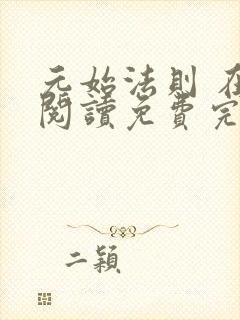 元始法則 在
閱讀免費完
二穎